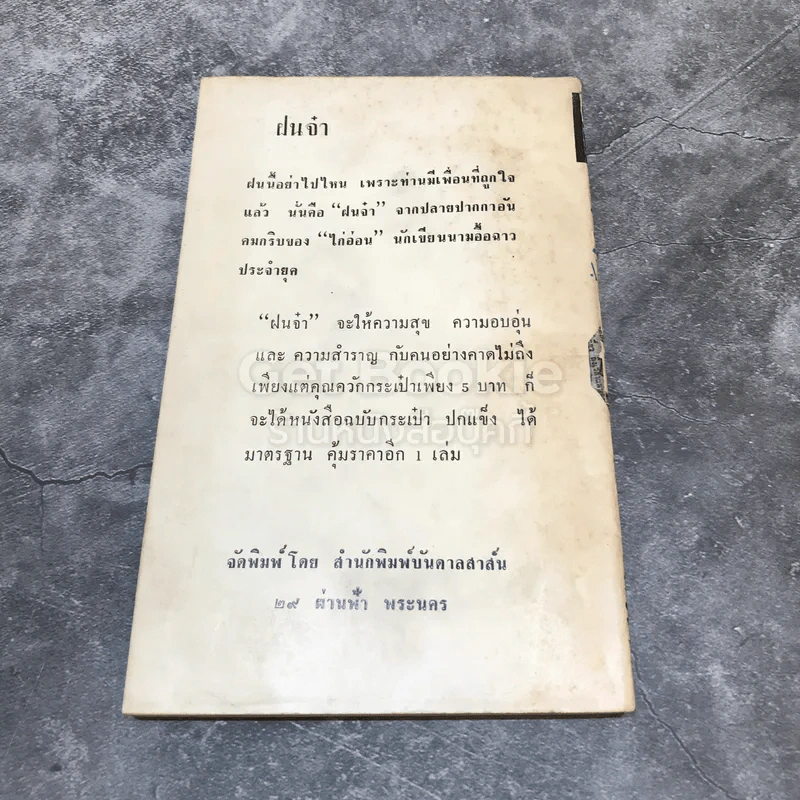 ฝนจ๋า
ฝนนี้อย่าไปไหน เพราะท่านมีเพื่อนที่ถูกใจ
แล้ว นั่นคือ “ฝนจ๋า” จากปลายปากกาอัน
คมกริบของ “ไก่อ่อน” นักเขียนนามอื้อฉาว
ประจำยุค
“ฝนจ๋า” จะให้ความสุข ความอบอุ่น
และ ความสำราญ กับคนอย่างคาดไม่ถึง
เพียงแต่คุณควักกระเป๋าเพียง 5 บาท ก็
จะได้หนังสือฉบับกระเป๋า ปกแข็ง ได้
มาตรฐาน คุ้มราคาอีก 1 เล่ม
จัดพิมพ์โดย สำนักพิมพ์บันดาลสาส์น
๒๙ ผ่านฟ้า พระนคร
Get Bookie
ร้านหนังสือบุ๊คกี้